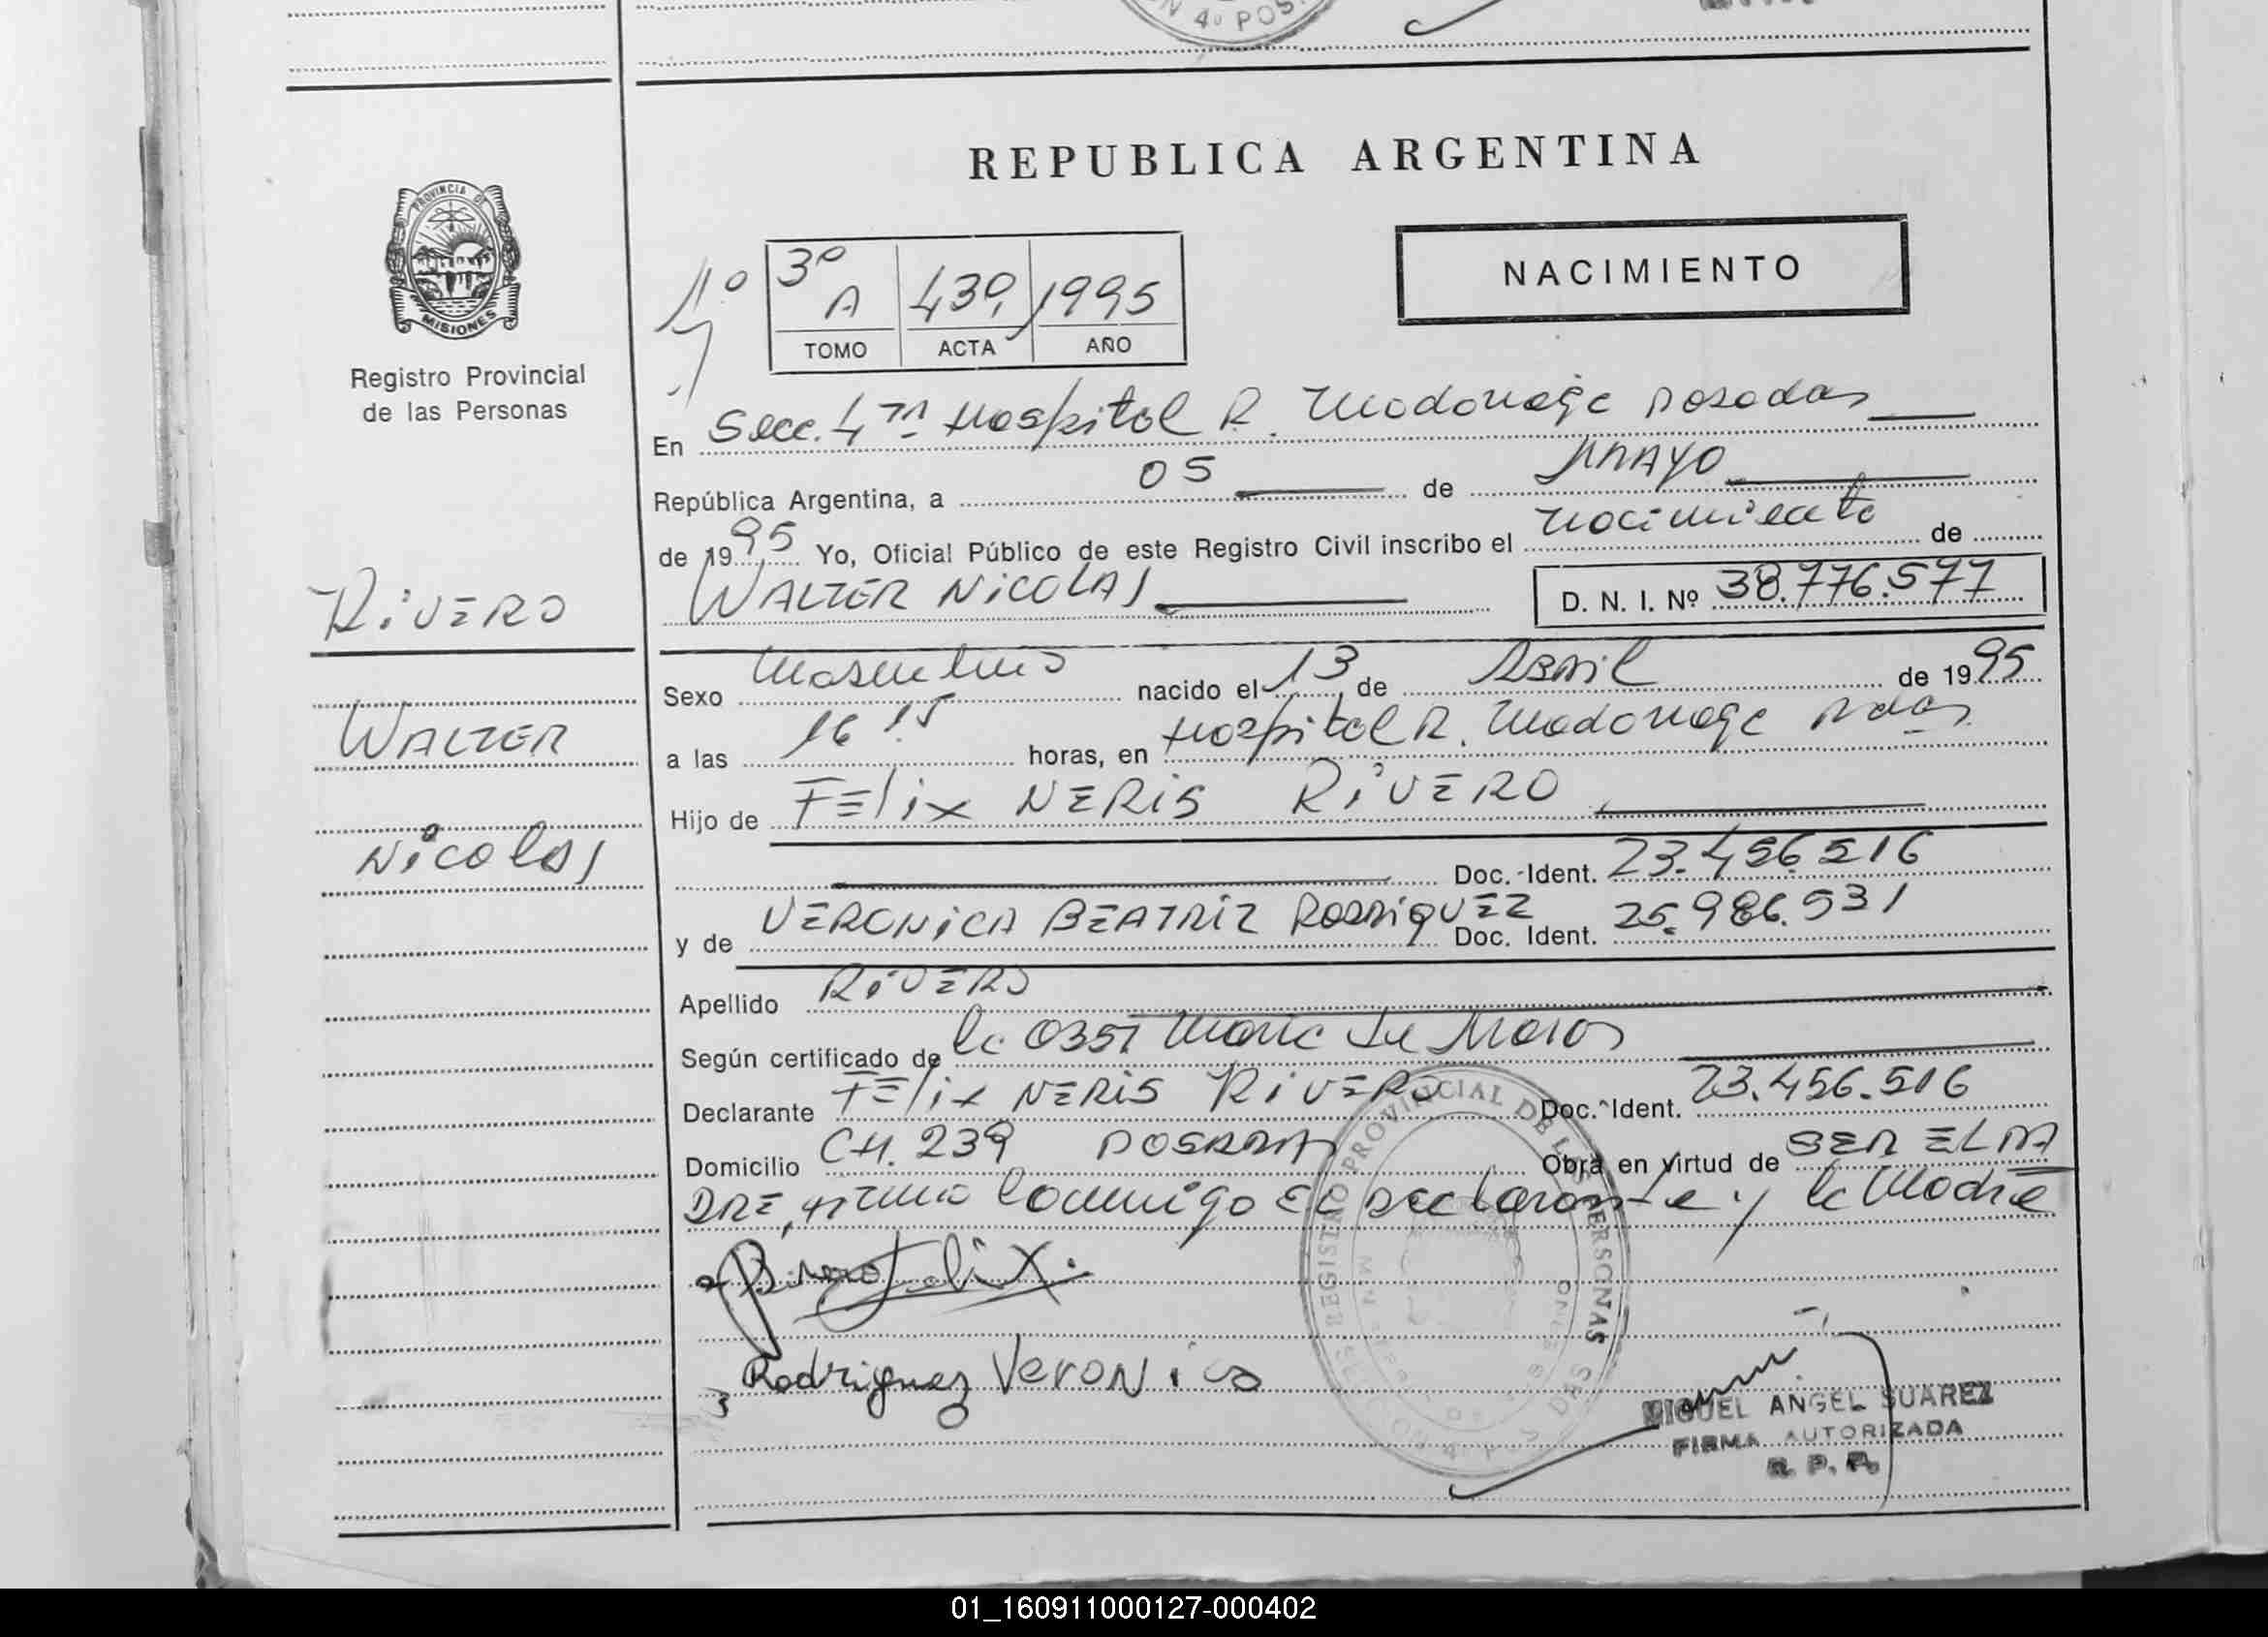 N 4º POS.
REPUBLICA ARGENTINA
PROVINCIA DE
MISIONES
Registro Provincial
de las Personas
NACIMIENTO
3º
A 439 1995
TOMO ACTA AÑO
En Secc. 4ta Hospital R. Madariaga Posadas
República Argentina, a 05 de MAYO
de 1995 Yo, Oficial Público de este Registro Civil inscribo el nacimiento de
WALTER NICOLAS D. N. I. Nº 38.776.577
RIVERO
WALTER
Nicolas
Sexo Masculino nacido el 13 de Abril de 1995
a las 16 15 horas, en Hospital R. Madariaga Pdas
Hijo de FELIX NERIS RIVERO
Doc. Ident. 23.456.516
y de VERONICA BEATRIZ RODRIGUEZ Doc. Ident. 25.986.531
Apellido RIVERO
Según certificado de la Obst
Declarante FELIX NERIS RIVERO Doc. Ident. 23.456.516
Domicilio CH. 239 POSADAS Obra en virtud de SER EL PA
DRE, firma conmigo el declarante y la Madre
Rivero Felix.
Rodriguez Veronica
REGISTRO PROVINCIAL DE LAS PERSONAS
MIGUEL ANGEL SUAREZ
FIRMA AUTORIZADA
R. P. P.
01_160911000127-000402